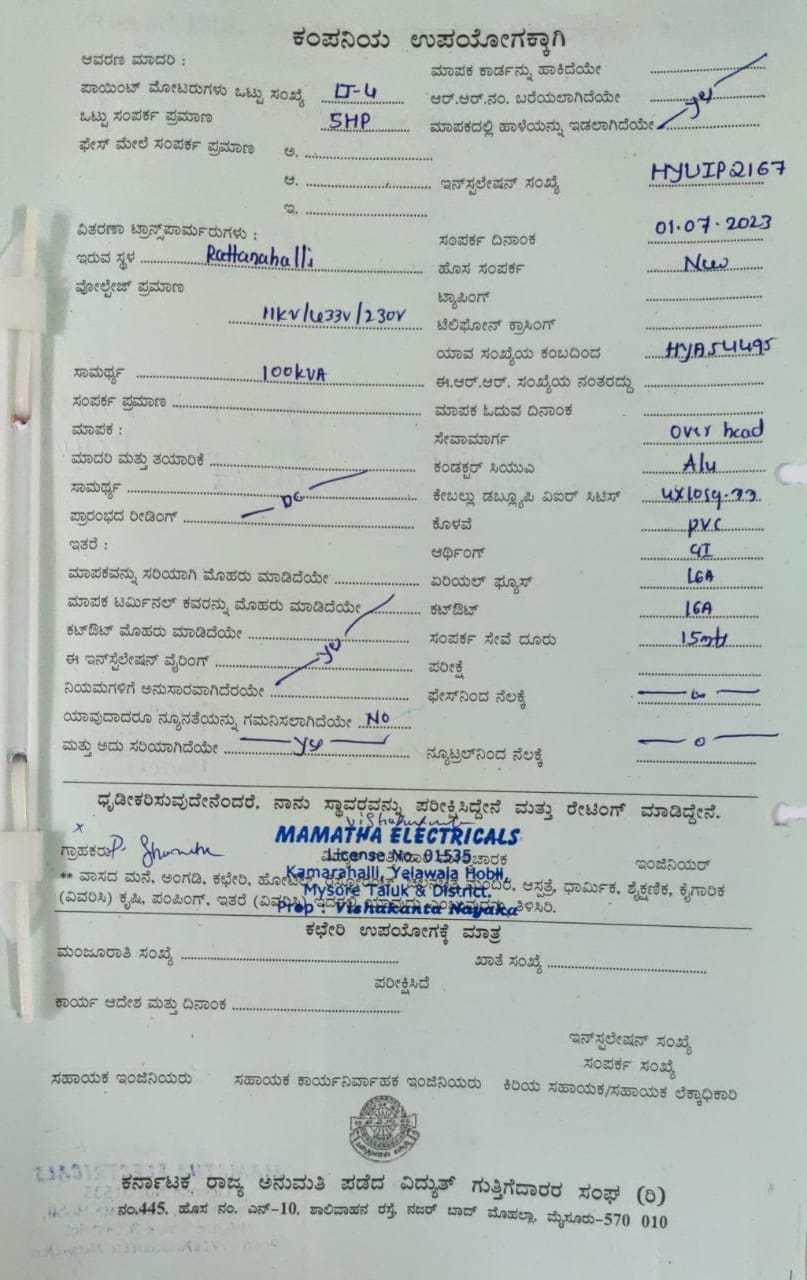 ಕಂಪನಿಯ ಉಪಯೋಗಕ್ಕಾಗಿ
ಆವರಣ ಮಾದರಿ :
ಮಾಪಕ ಕಾರ್ಡನ್ನು ಹಾಕಿದೆಯೇ
ಪಾಯಿಂಟ್ ಮೋಟರುಗಳು ಒಟ್ಟು ಸಂಖ್ಯೆ LT-4 ಆರ್.ಆರ್.ನಂ. ಬರೆಯಲಾಗಿದೆಯೇ
ಒಟ್ಟು ಸಂಪರ್ಕ ಪ್ರಮಾಣ 5HP ಮಾಪಕದಲ್ಲಿ ಹಾಳೆಯನ್ನು ಇಡಲಾಗಿದೆಯೇ yes
ಫೇಸ್ ಮೇಲೆ ಸಂಪರ್ಕ ಪ್ರಮಾಣ ಅ.
ಆ. ಇನ್‌ಸ್ಟಲೇಷನ್ ಸಂಖ್ಯೆ HYUIP2167
ಇ.
ವಿತರಣಾ ಟ್ರಾನ್ಸ್‌ಪಾರ್ಮರುಗಳು : ಸಂಪರ್ಕ ದಿನಾಂಕ 01.07.2023
ಇರುವ ಸ್ಥಳ Rattanahalli ಹೊಸ ಸಂಪರ್ಕ New
ವೋಲ್ಟೇಜ್ ಪ್ರಮಾಣ ಟ್ಯಾಪಿಂಗ್
11KV/433V/230V ಟೆಲಿಫೋನ್ ಕ್ರಾಸಿಂಗ್
ಯಾವ ಸಂಖ್ಯೆಯ ಕಂಬದಿಂದ HYA54495
ಸಾಮರ್ಥ್ಯ 100kVA ಈ.ಆರ್.ಆರ್. ಸಂಖ್ಯೆಯ ನಂತರದ್ದು
ಸಂಪರ್ಕ ಪ್ರಮಾಣ ಮಾಪಕ ಓದುವ ದಿನಾಂಕ
ಮಾಪಕ : ಸೇವಾಮಾರ್ಗ over head
ಮಾದರಿ ಮತ್ತು ತಯಾರಿಕೆ ಕಂಡಕ್ಟರ್ ಸಿಯುಎ Alu
ಸಾಮರ್ಥ್ಯ DC ಕೇಬಲ್ಲು ಡಬ್ಲ್ಯೂಪಿ ವಿಐರ್ ಸಿಟಿಸ್
ಪ್ರಾರಂಭದ ರೀಡಿಂಗ್ ಕೊಳವೆ pvc
ಇತರೆ : ಆರ್ಥಿಂಗ್ GI
ಮಾಪಕವನ್ನು ಸರಿಯಾಗಿ ಮೊಹರು ಮಾಡಿದೆಯೇ ಏರಿಯಲ್ ಫ್ಯೂಸ್ 16A
ಮಾಪಕ ಟರ್ಮಿನಲ್ ಕವರನ್ನು ಮೊಹರು ಮಾಡಿದೆಯೇ ಕಟ್‌ಔಟ್ 16A
ಕಟ್‌ಔಟ್ ಮೊಹರು ಮಾಡಿದೆಯೇ yes ಸಂಪರ್ಕ ಸೇವೆ ದೂರು 15mtr
ಈ ಇನ್‌ಸ್ಟೆಲೇಷನ್ ವೈರಿಂಗ್ ಪರೀಕ್ಷೆ
ನಿಯಮಗಳಿಗೆ ಅನುಸಾರವಾಗಿದೆರಯೇ ಫೇಸ್‌ನಿಂದ ನೆಲಕ್ಕೆ
ಯಾವುದಾದರೂ ನ್ಯೂನತೆಯನ್ನು ಗಮನಿಸಲಾಗಿದೆಯೇ NO
ಮತ್ತು ಅದು ಸರಿಯಾಗಿದೆಯೇ yes ನ್ಯೂಟ್ರಲ್‌ನಿಂದ ನೆಲಕ್ಕೆ 0
ಧೃಡೀಕರಿಸುವುದೇನೆಂದರೆ, ನಾನು ಸ್ಥಾವರವನ್ನು ಪರೀಕ್ಷಿಸಿದ್ದೇನೆ ಮತ್ತು ರೇಟಿಂಗ್ ಮಾಡಿದ್ದೇನೆ.
MAMATHA ELECTRICALS
ಗ್ರಾಹಕರು License No. 01535 ಇಂಜಿನಿಯರ್
Kamarahalli, Yelawala Hobli,
** ವಾಸದ ಮನೆ, ಅಂಗಡಿ, ಕಛೇರಿ, ಹೋಟೆಲ್, ಮಂದಿರ, ಆಸ್ಪತ್ರೆ, ಧಾರ್ಮಿಕ, ಶೈಕ್ಷಣಿಕ, ಕೈಗಾರಿಕ
Mysore Taluk & District.
(ವಿವರಿಸಿ) ಕೃಷಿ, ಪಂಪಿಂಗ್, ಇತರೆ (ವಿವರಿಸಿ) ತಿಳಿಸಿರಿ.
Prop : Vishakanta Nayaka
ಕಛೇರಿ ಉಪಯೋಗಕ್ಕೆ ಮಾತ್ರ
ಮಂಜೂರಾತಿ ಸಂಖ್ಯೆ ಖಾತೆ ಸಂಖ್ಯೆ
ಪರೀಕ್ಷಿಸಿದೆ
ಕಾರ್ಯ ಆದೇಶ ಮತ್ತು ದಿನಾಂಕ
ಇನ್‌ಸ್ಟಲೇಷನ್ ಸಂಖ್ಯೆ
ಸಂಪರ್ಕ ಸಂಖ್ಯೆ
ಸಹಾಯಕ ಇಂಜಿನಿಯರು ಸಹಾಯಕ ಕಾರ್ಯನಿರ್ವಾಹಕ ಇಂಜಿನಿಯರು ಕಿರಿಯ ಸಹಾಯಕ/ಸಹಾಯಕ ಲೆಕ್ಕಾಧಿಕಾರಿ
ಕರ್ನಾಟಕ ರಾಜ್ಯ ಅನುಮತಿ ಪಡೆದ ವಿದ್ಯುತ್ ಗುತ್ತಿಗೆದಾರರ ಸಂಘ (ರಿ)
ನಂ.445, ಹೊಸ ನಂ. ಎನ್-10, ಶಾಲಿವಾಹನ ರಸ್ತೆ, ನಜರ್ ಬಾದ್ ಮೊಹಲ್ಲಾ, ಮೈಸೂರು-570 010